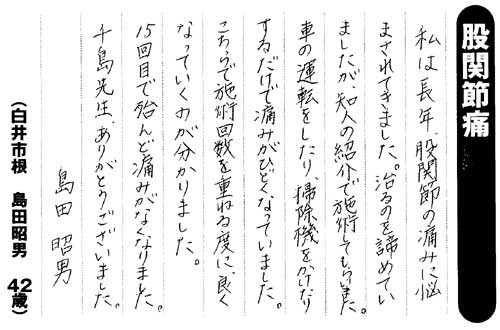 股関節痛
私は長年、股関節の痛みに悩
まされてきました。治るのを諦めてい
ましたが、知人の紹介で施術してもらいました。
車の運転をしたり、掃除機をかけたり
するだけで痛みがひどくなっていました。
こちらで施術回数を重ねる度に、良く
なっていくのが分かりました。
15回目で殆んど痛みがなくなりました。
千島先生、ありがとうございました。
島田 昭男
(白井市根 島田昭男 42歳)